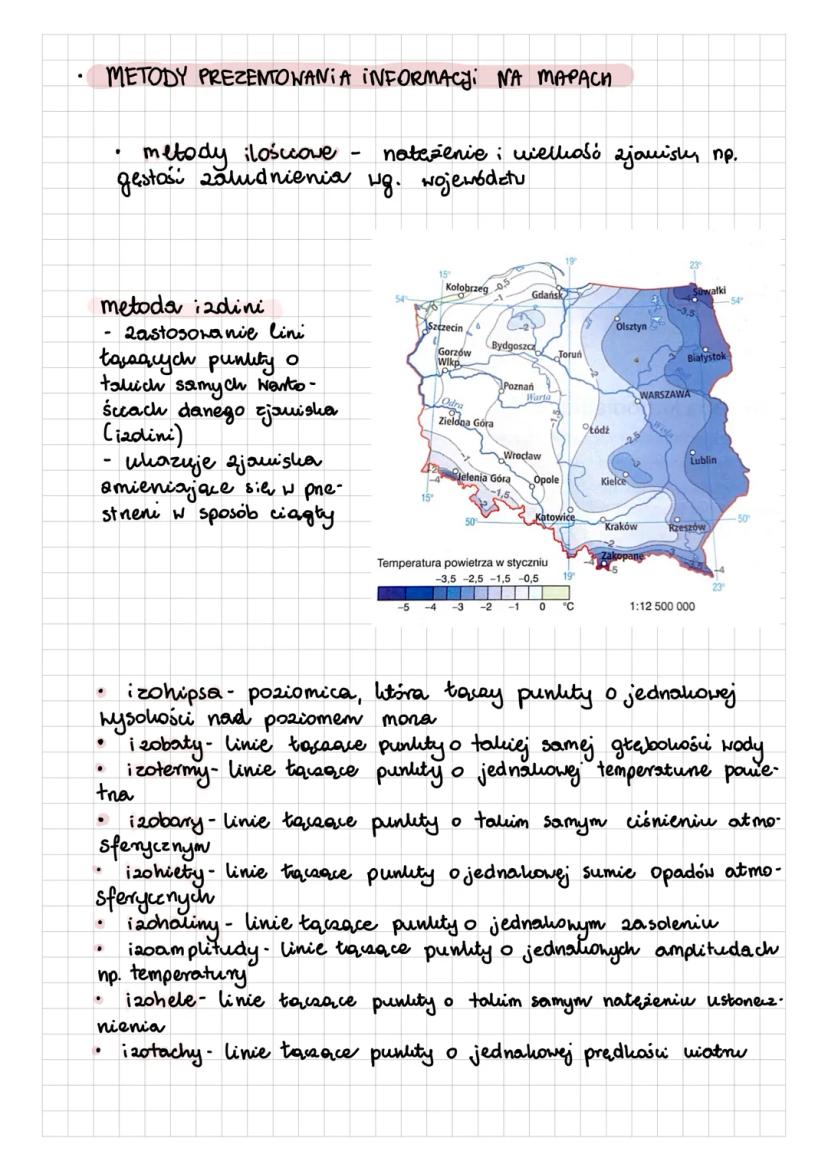 • METODY PREZENTOWANIA INFORMACJI NA MAPACH
• metody ilościowe - natężenie i wielkość zjawiska, np.
gęstość zaludnienia wg. województw
metoda izolini
- zastosowanie lini
łączących punkty o
takich samych warto-
ściach danego zjawiska
(izolini)
- ukazuje zjawiska
zmieniające się w prze-
strzeni w sposób ciągły
15° 19° 23°
54° Kołobrzeg -0,5 Gdańsk Suwałki 54°
0 -1 -3,5
Szczecin -2 Olsztyn
Gorzów Wlkp. Bydgoszcz Toruń Białystok
Poznań Warta WARSZAWA
Odra -1,5
Zielona Góra Łódź Wisła
-2,5
Wrocław Lublin
-1 Kielce
-4 Jelenia Góra Opole
15° -1,5
50° Katowice Kraków Rzeszów 50°
-2
Zakopane
-4 -5 -4
19° 23°
Temperatura powietrza w styczniu
-3,5 -2,5 -1,5 -0,5
-5 -4 -3 -2 -1 0 °C
1:12 500 000
• izohipsa - poziomica, która łączy punkty o jednakowej
wysokości nad poziomem morza
• izobaty - linie łączące punkty o takiej samej głębokości wody
• izotermy - linie łączące punkty o jednakowej temperaturze powie-
trza
• izobary - linie łączące punkty o takim samym ciśnieniu atmo-
sferycznym
• izohiety - linie łączące punkty o jednakowej sumie opadów atmo-
sferycznych
• izohaliny - linie łączące punkty o jednakowym zasoleniu
• izoamplitudy - linie łączące punkty o jednakowych amplitudach
np. temperatury
• izohele - linie łączące punkty o takim samym natężeniu usłonecz-
nienia
• izotachy - linie łączące punkty o jednakowej prędkości wiatru